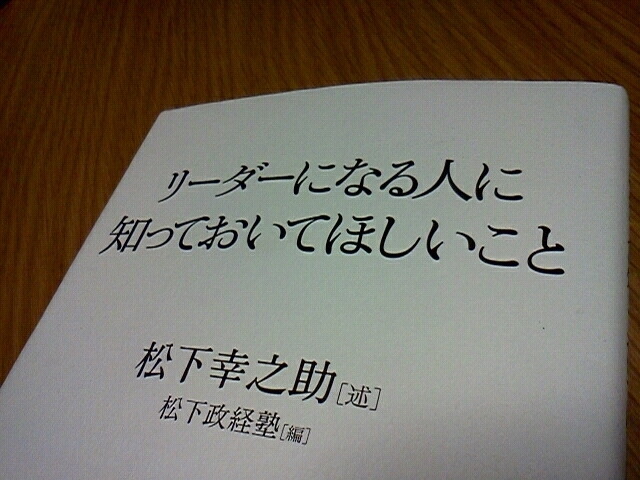 リーダーになる人に
知っておいてほしいこと
松下幸之助[述]
松下政経塾[編]